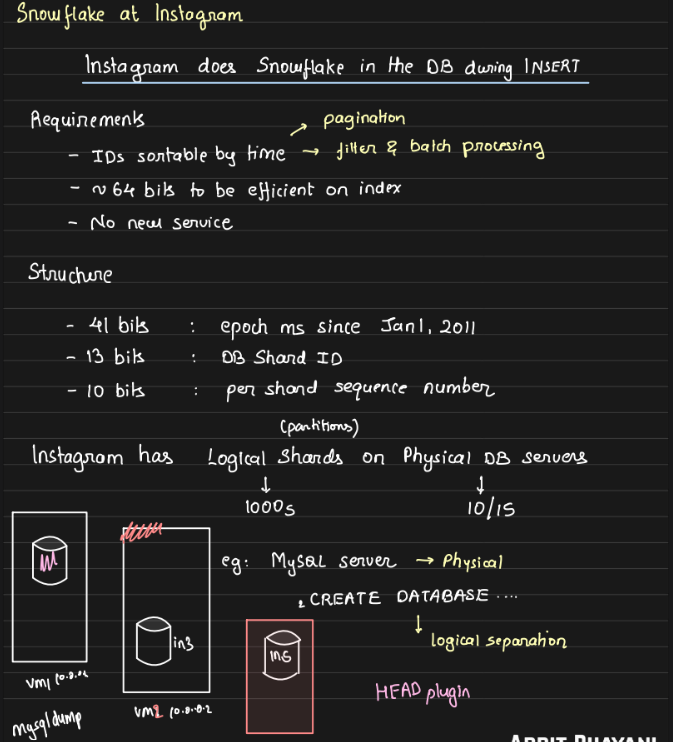 Snowflake at Instagram
Instagram does Snowflake in the DB during INSERT
Requirements
pagination
- IDs sortable by time → filter & batch processing
- ~ 64 bits to be efficient on index
- No new service
Structure
- 41 bits : epoch ms since Jan 1, 2011
- 13 bits : DB Shard ID
- 10 bits : per shard sequence number
(partitions)
Instagram has Logical Shards on Physical DB servers
1000s 10/15
eg: MySQL server → Physical
CREATE DATABASE ....
in3
logical separation
in5
vm1 10.0.0.1
vm2 10.0.0.2
HEAD plugin
mysqldump
ARPIT BHAYANI